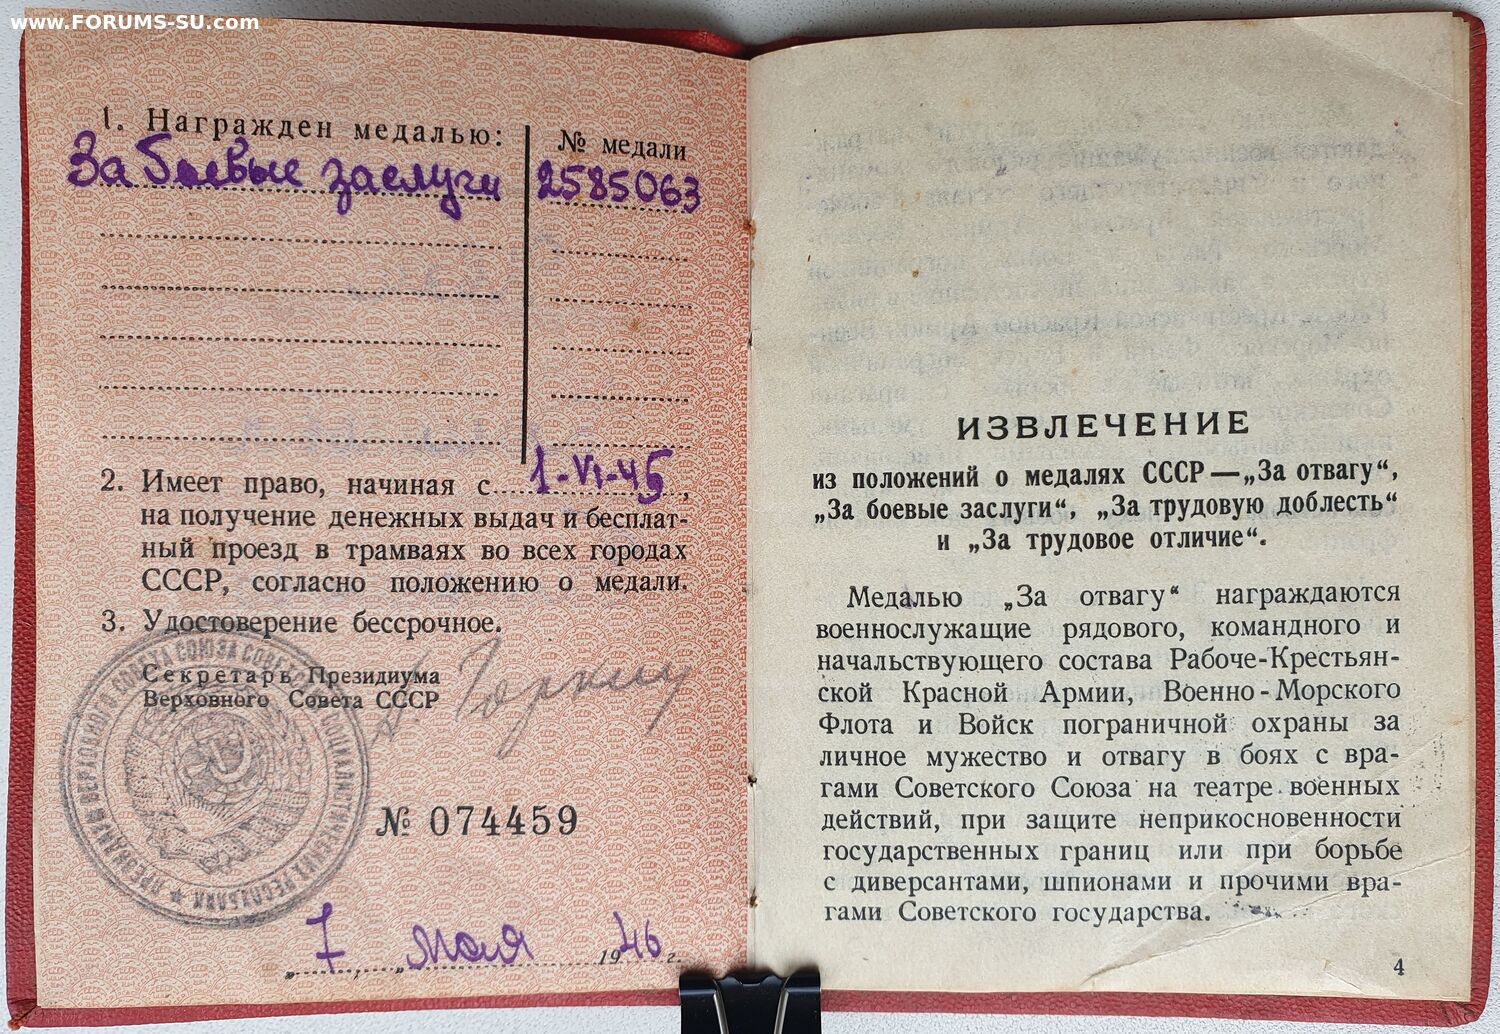 www.FORUMS-SU.com
1. Награжден медалью:
№ медали
За боевые заслуги
2585063
2. Имеет право, начиная с 1-VI-45,
на получение денежных выдач и бесплат-
ный проезд в трамваях во всех городах
СССР, согласно положению о медали.
3. Удостоверение бессрочное.
Секретарь Президиума
Верховного Совета СССР
№ 074459
7 мая 1946 г.
ИЗВЛЕЧЕНИЕ
из положений о медалях СССР — „За отвагу“,
„За боевые заслуги“, „За трудовую доблесть“
и „За трудовое отличие“.
Медалью „За отвагу“ награждаются
военнослужащие рядового, командного и
начальствующего состава Рабоче-Крестьян-
ской Красной Армии, Военно-Морского
Флота и Войск пограничной охраны за
личное мужество и отвагу в боях с вра-
гами Советского Союза на театре военных
действий, при защите неприкосновенности
государственных границ или при борьбе
с диверсантами, шпионами и прочими вра-
гами Советского государства.
4